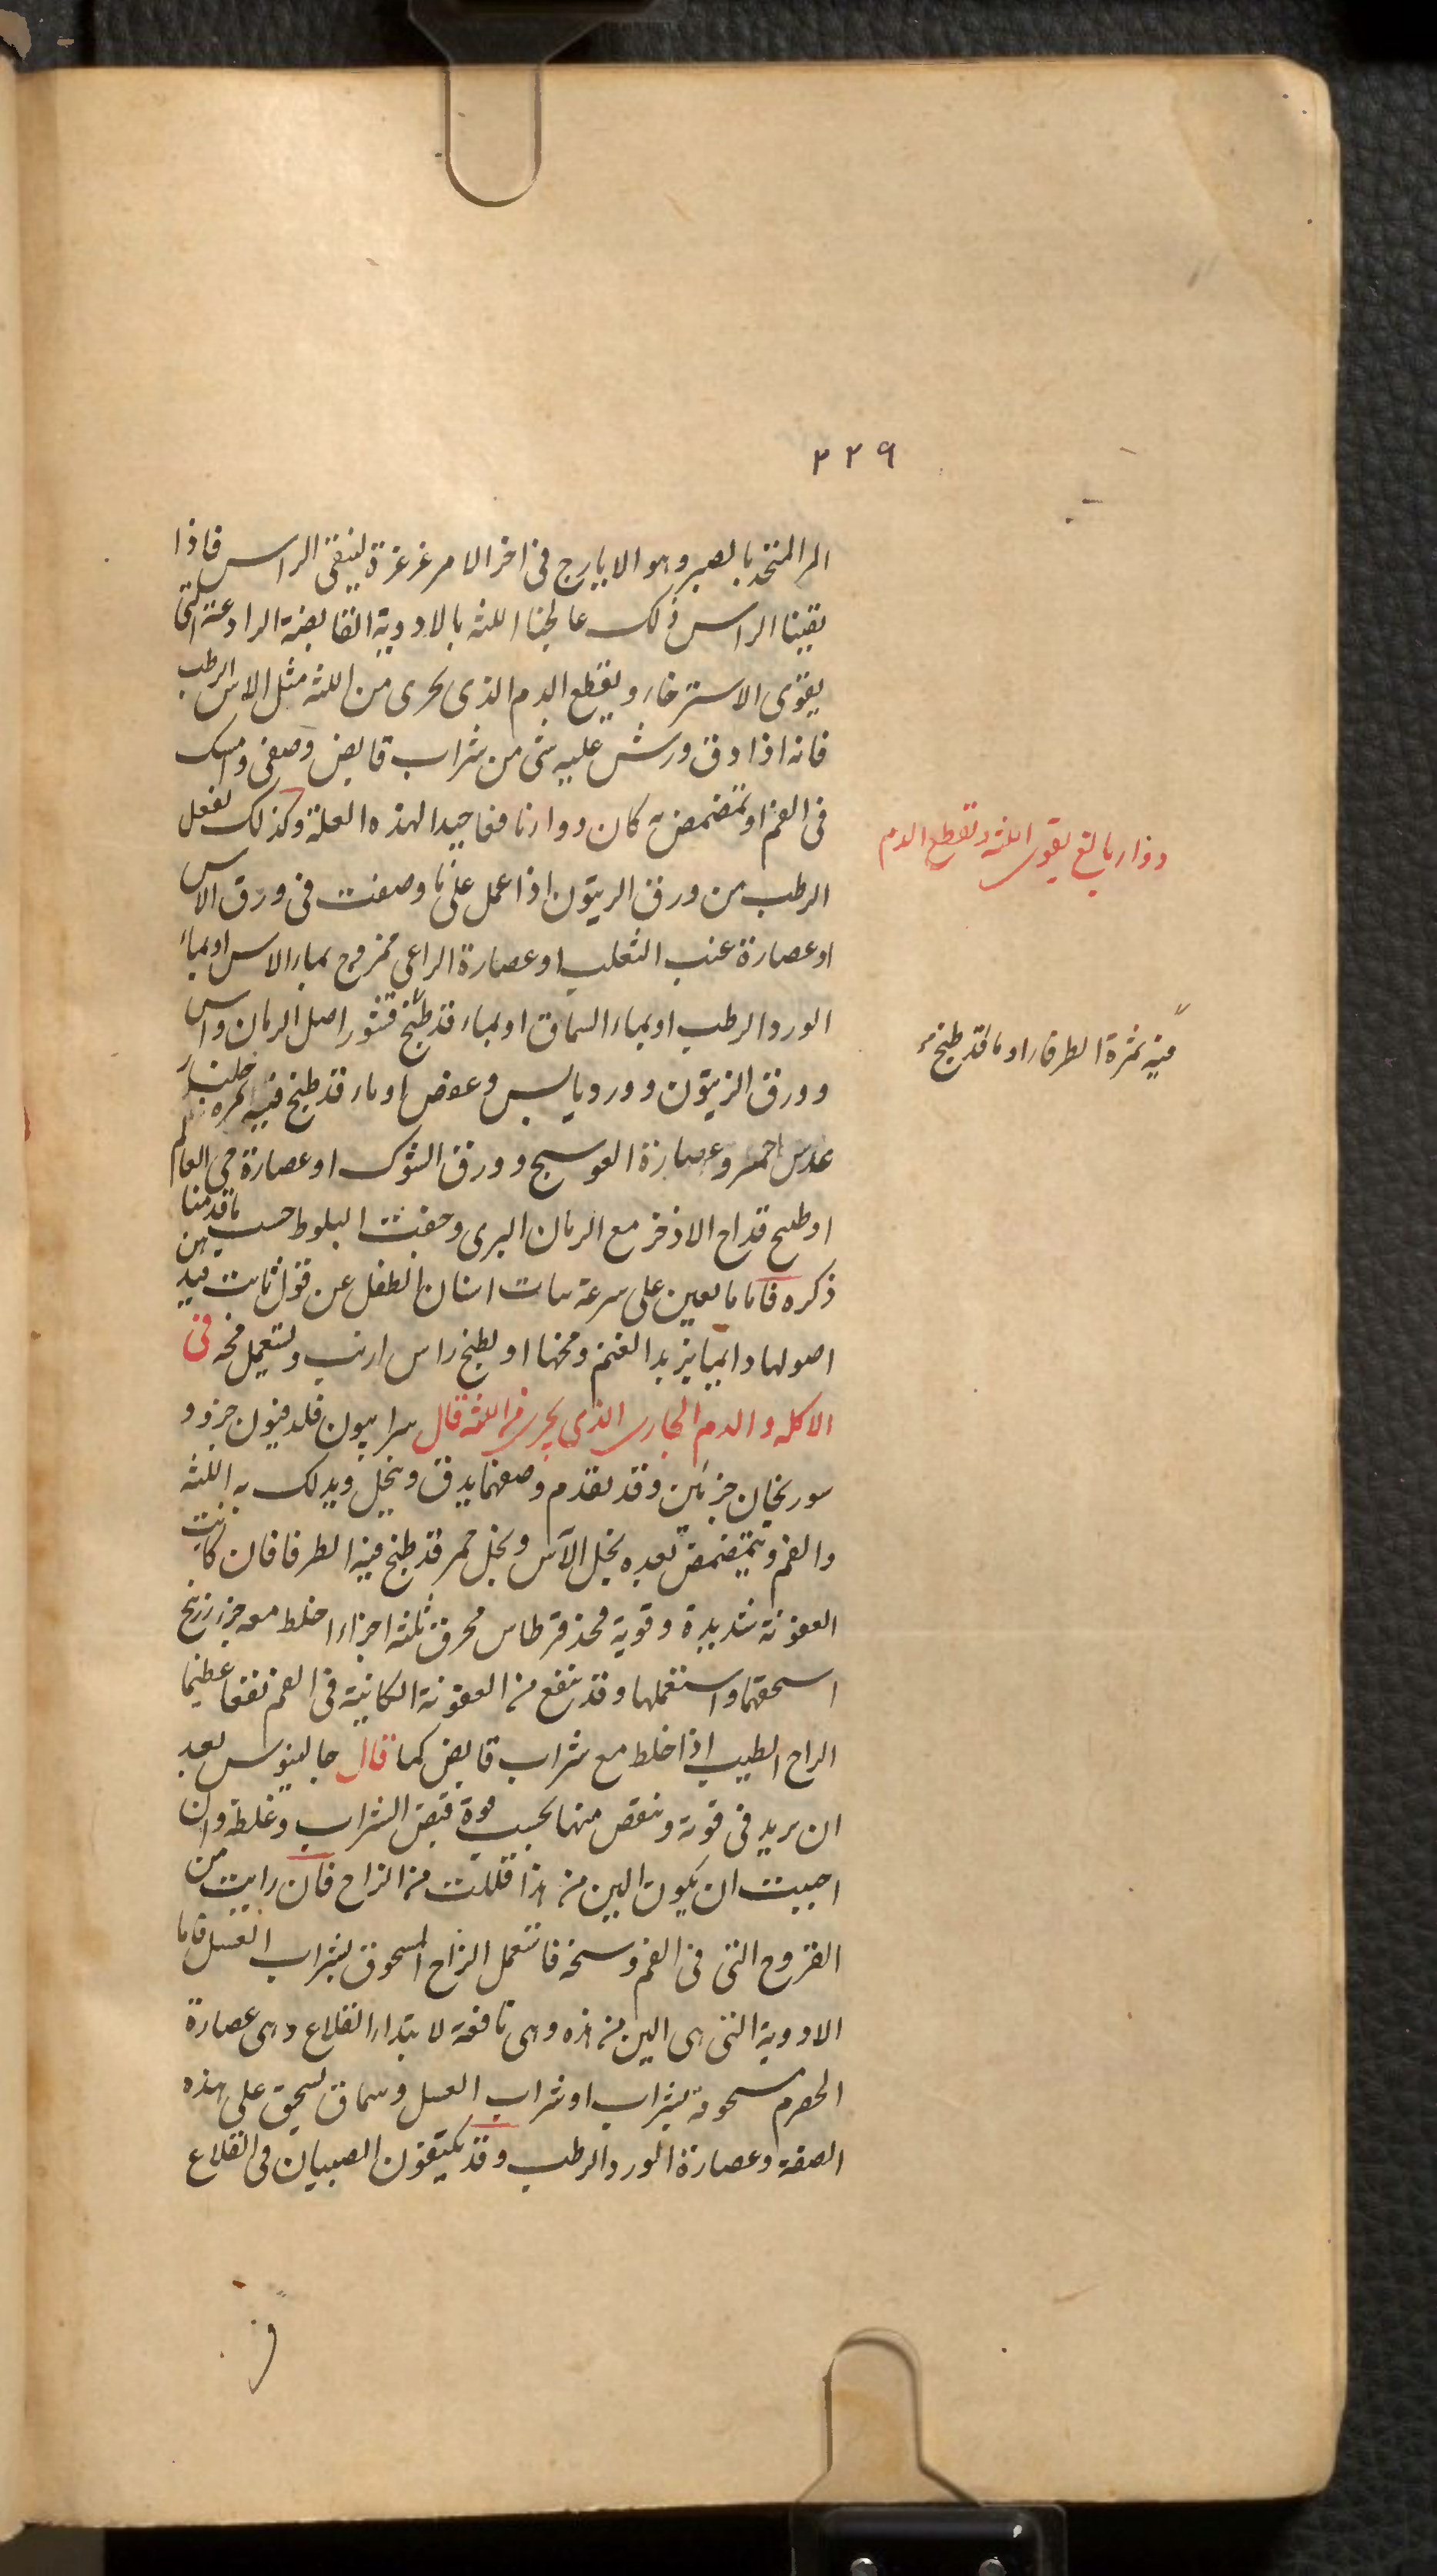 ٢٢٩
المر المتخذ بالصبر وهو الايارج فى اخر الامر غرغرة لينقى الراس فاذا
نقينا الراس ذلك عالجنا اللثه بالادوية القابضة الرادعة التى
يقوى الاسترخاء ويقطع الدم الذى يجرى من اللثه مثل الاس الرطب
فانه اذا دق ورش عليه شى من شراب قابض وصفى وامسك
فى الفم او تمضمض به كان دواء نافعا جيدا لهذه العلة وكذلك يفعل
الرطب من ورق الزيتون اذا عمل على ما وصفت فى ورق الاس
او عصارة عنب الثعلب او عصارة الراعى ممزوج بماء الاس او بماء
الورد الرطب او بماء السماق او بماء قد طبخ قشور اصل الرمان واس
وورق الزيتون وورد يابس وعفص او ماء قد طبخ فيه ثمره جلنار
عدس احمر وعصارة العوسج وورق الشوك او عصارة حى العالم
او طبيخ قداح الاذخر مع الرمان البرى وجفت البلوط حسب ما قدمنا
ذكره فاما ما يعين على سرعة نبات اسنان الطفل عن قول ثابت فيدهن
اصولها دايما بزبد الغنم ومخها او يطبخ راس ارنب ويستعمل مخه فى
الاكله والدم الجارى الذى يجرى من اللثه قال سرابيون فلدفيون جزو و
سورنجان جزئين وقد تقدم وصفهما يدق وينخل ويدلك به اللثه
والفم ويتمضمض بعده بخل الآس وبخل خمر قد طبخ فيه الطرفا فان كانت
العفونة شديدة وقوية فخذ قرطاس محرق ثلثه اجزاء اخلط معه جزء زرنيخ
اسحقهما واستعملها وقد ينفع من العفونة الكاينة فى الفم نفعا عظيما
الزاج الطيب اذا خلط مع شراب قابض كما قال جالينوس بعد
ان يزيد فى قوته وينقص منها بحسب قوة قبض الشراب وغلظه وان
احببت ان يكون الين من هذا قللت من الزاج فان رايت من
القروح التى فى الفم وسخة فاستعمل الزاج المسحوق بشراب العسل فاما
الادوية التى هى الين من هذه وهى نافعة لابتداء القلاع وهى عصارة
الحصرم مسحوقة بشراب او شراب العسل وسماق يسحق على هذه
الصفة وعصارة الورد الرطب وقد يكتفون الصبيان فى القلاع
دواء بالغ يقوى اللثه ويقطع الدم
فيه ثمرة الطرفاء او ما قد طبخ